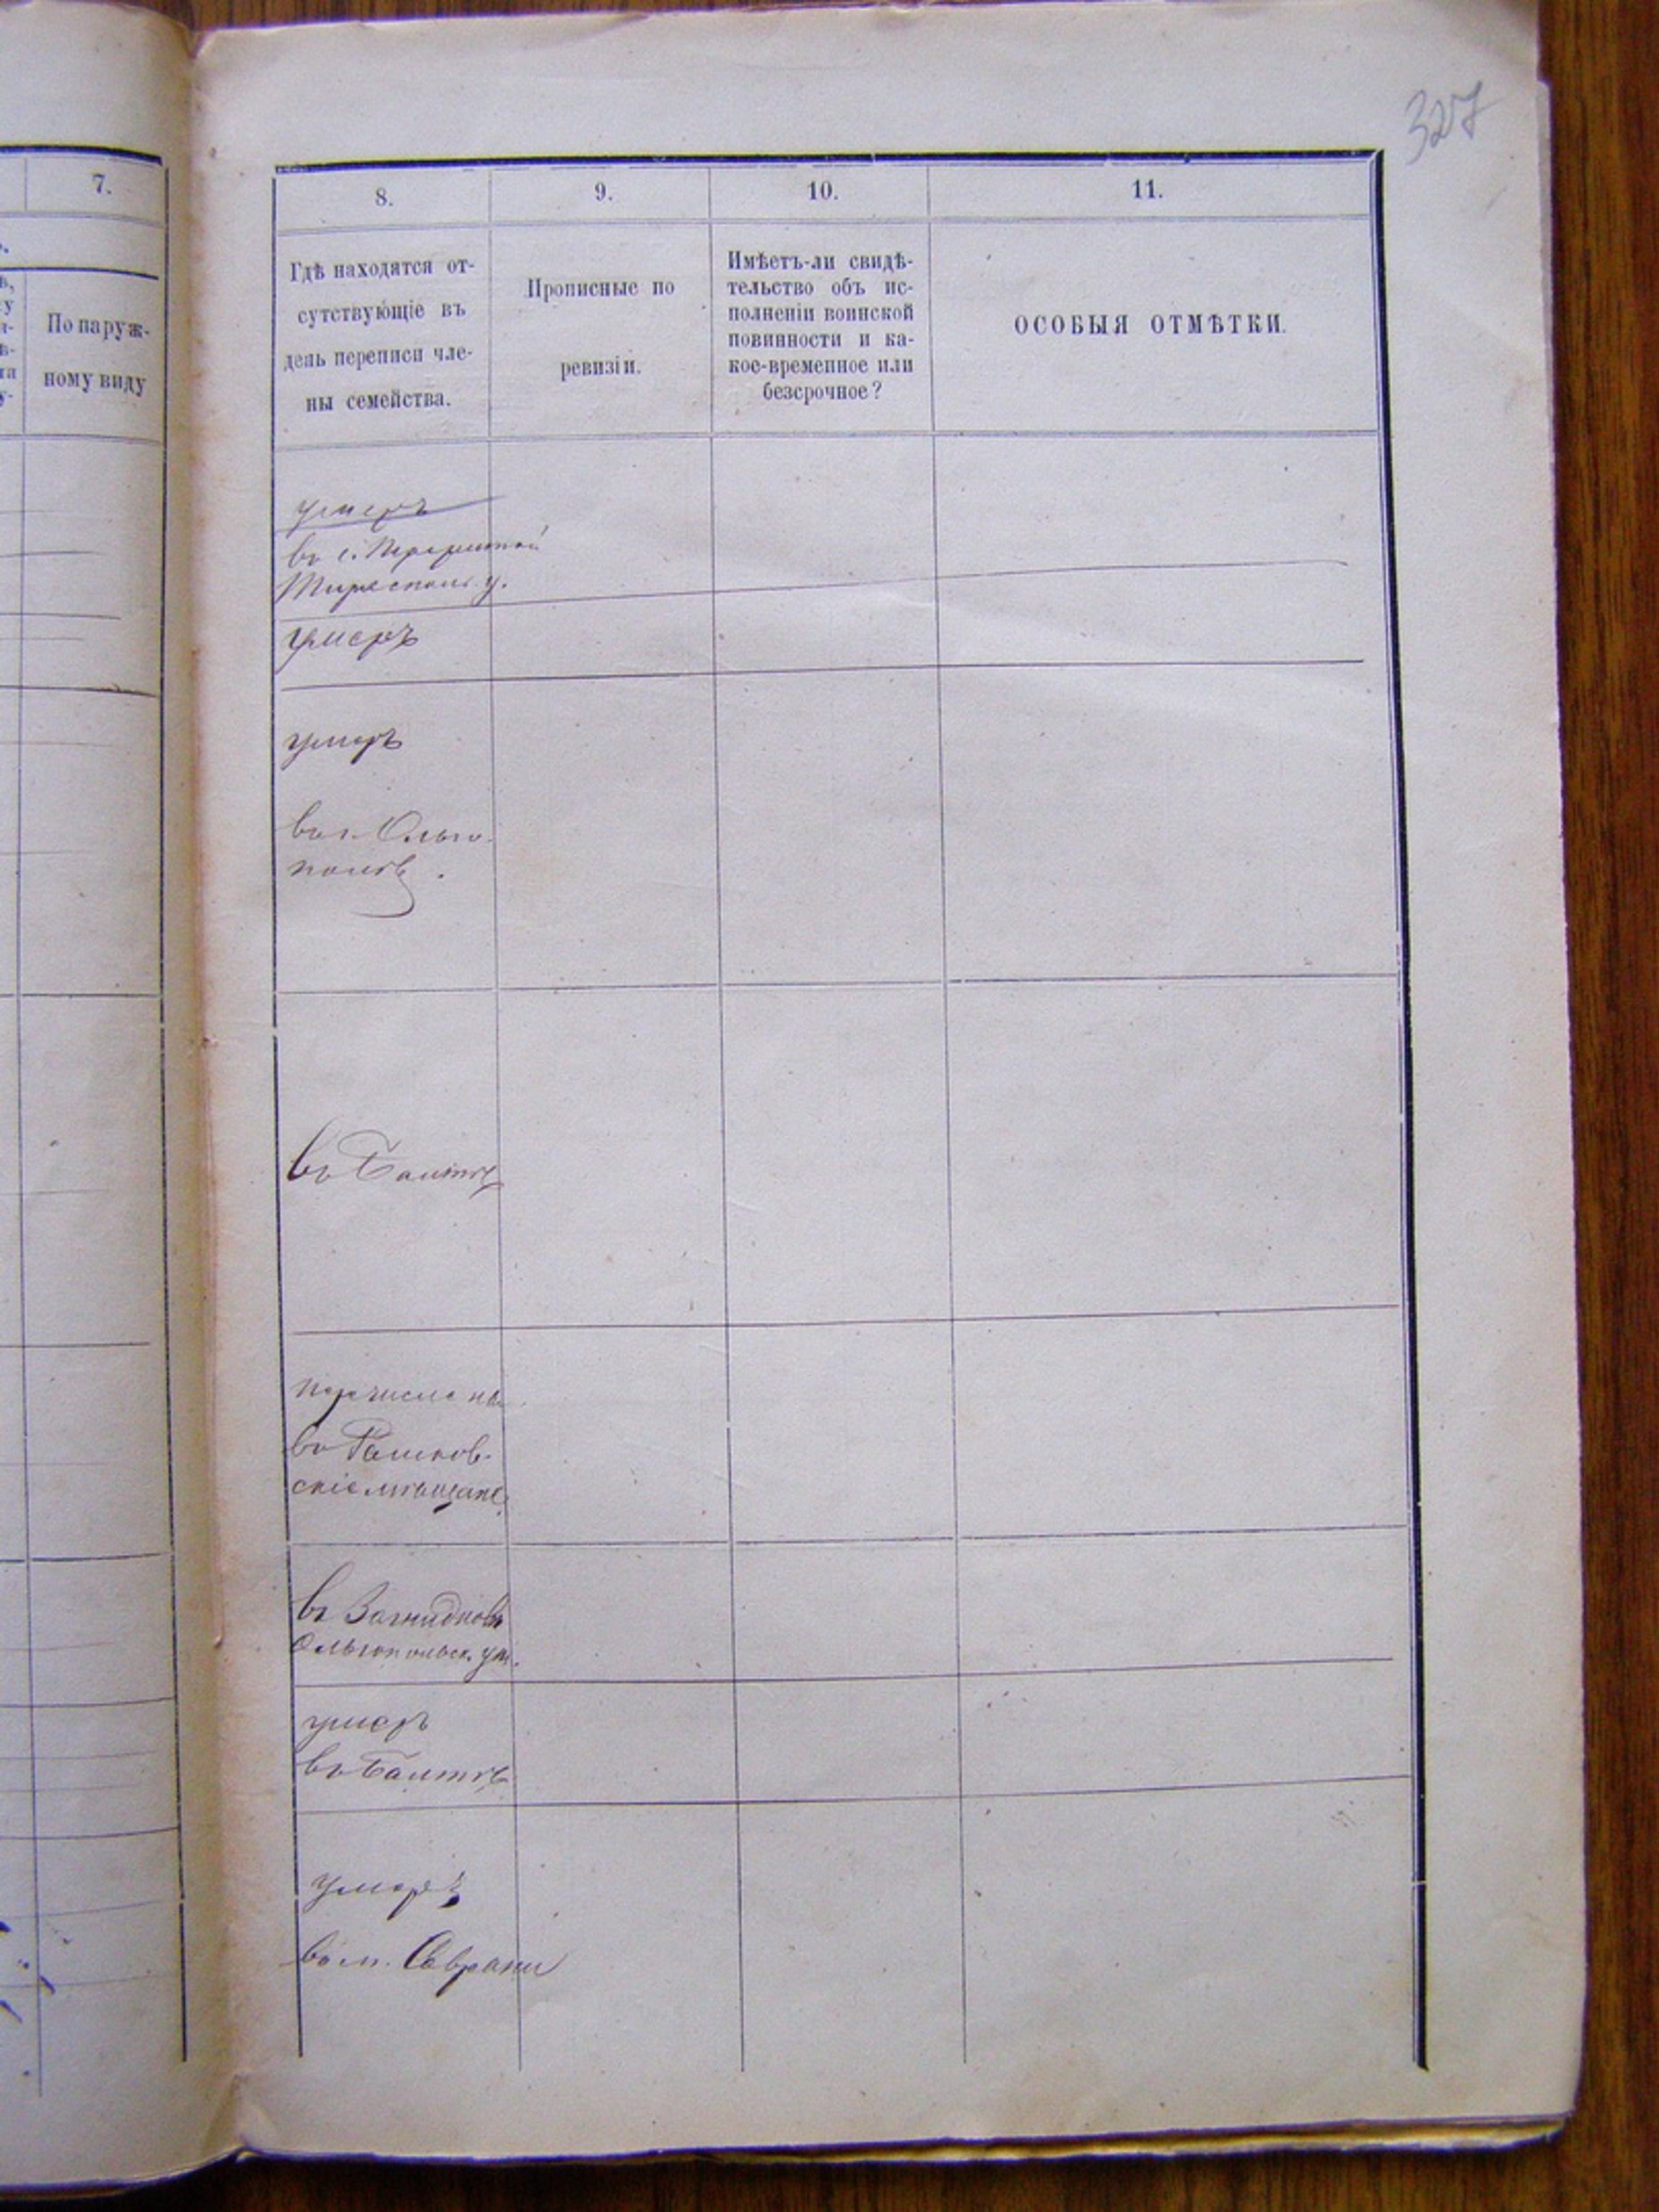 327
7.
По наруж-
ному виду
8.
9.
10.
11.
Гдѣ находятся от-
сутствующіе въ
день переписи чле-
ны семейства.
Прописные по
ревизіи.
Имѣетъ-ли свидѣ-
тельство объ ис-
полненіи воинской
повинности и ка-
кое-временное или
безсрочное?
ОСОБЫЯ ОТМѢТКИ.
умеръ
въ с.
Тираспол. у.
умеръ
умеръ
въ г. Ольго-
полѣ.
въ Балтѣ
перечислены
въ Рашков-
скіе мѣщане
въ Загнидковѣ
Ольгопольск. уѣ.
умеръ
въ Балтѣ
умеръ
въ м. Саврани